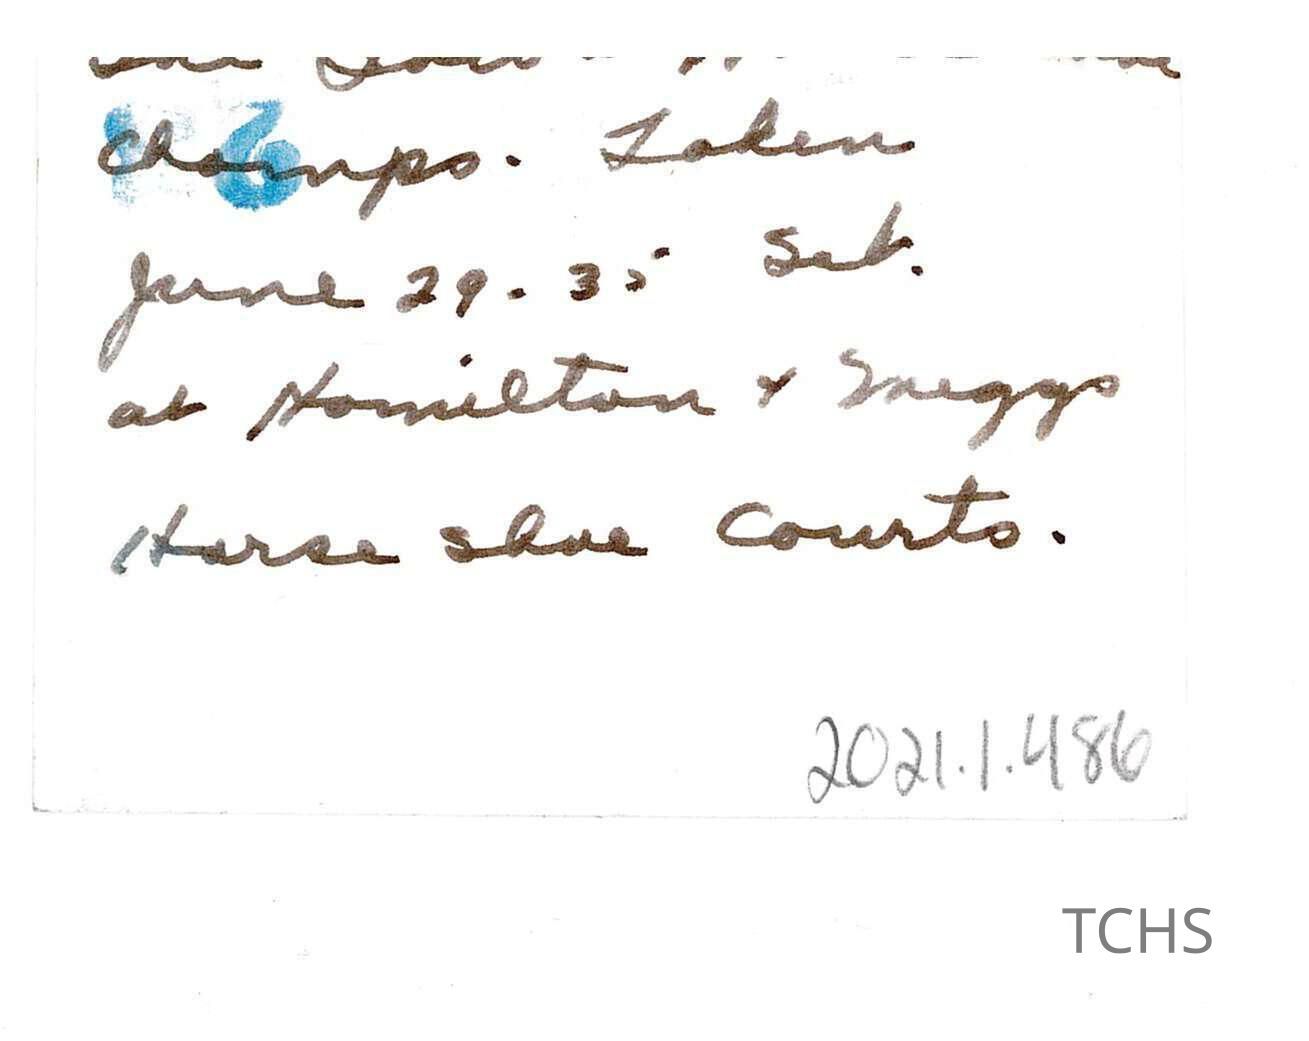 Champs. Taken
June 29. 35 Sat.
at Hamilton &
Horse shoe Courts.
2021.1.486
TCHS